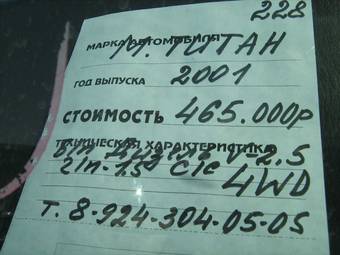 228
МАРКА АВТОМОБИЛЯ М. ТИТАН
ГОД ВЫПУСКА 2001
СТОИМОСТЬ 465.000р
ТЕХНИЧЕСКАЯ ХАРАКТЕРИСТИКА
б/п ДИЗЕЛЬ V-2.5
г/п-1,5 С/С 4WD
т. 8-924-304-05-05